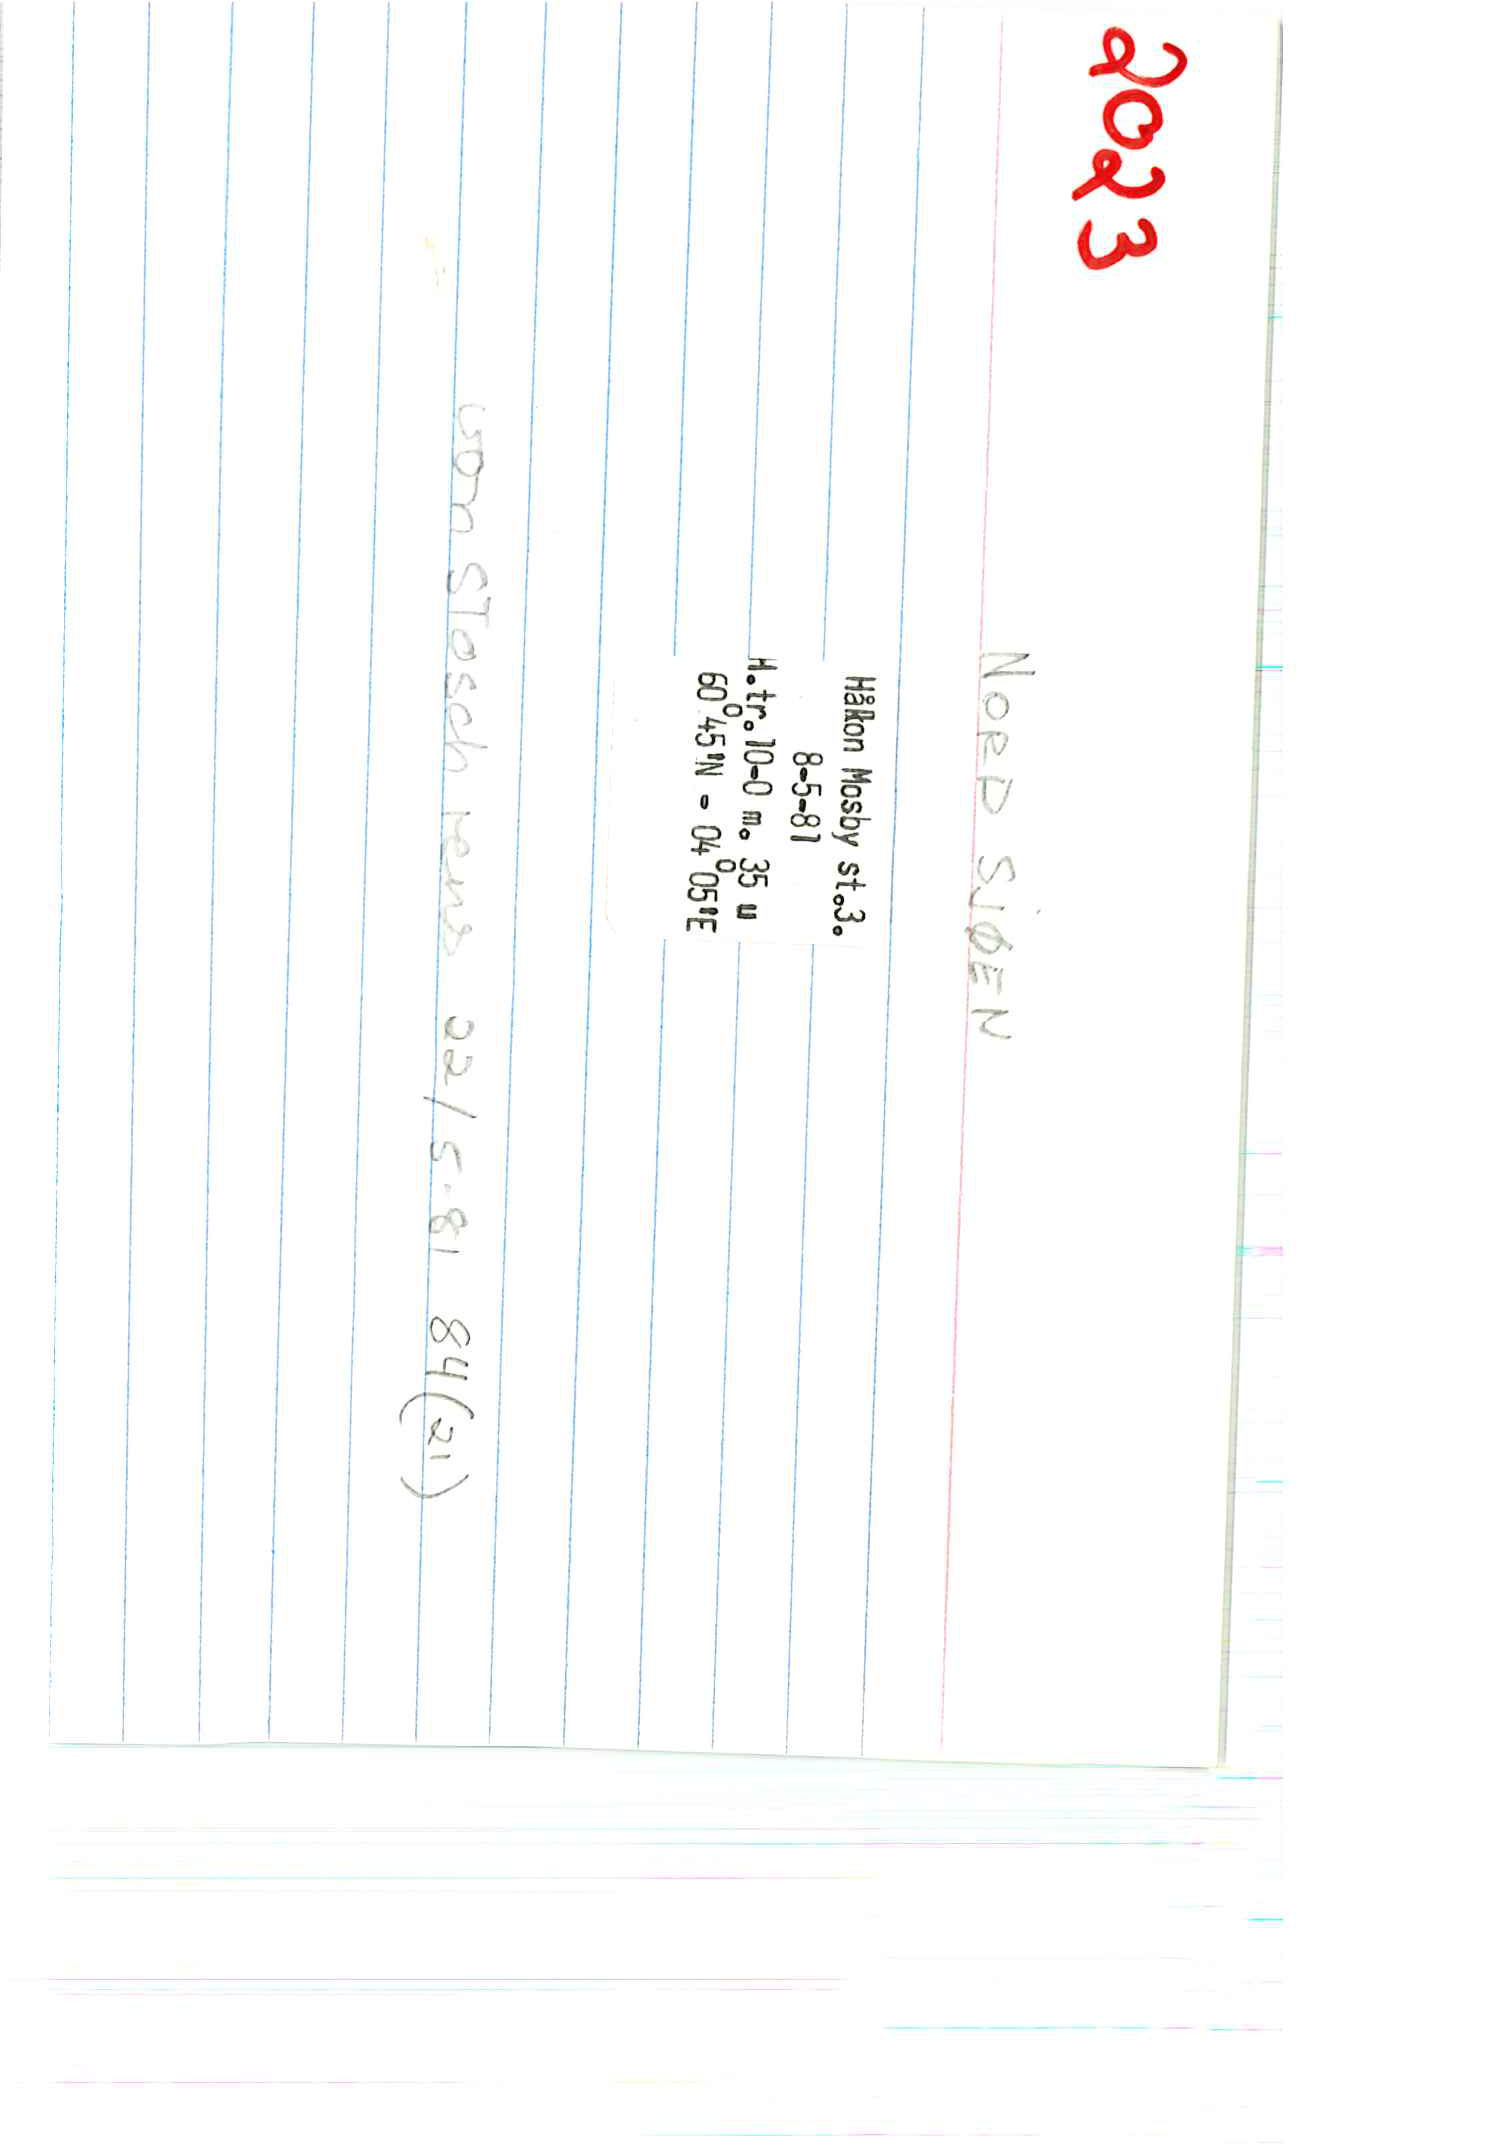 2023
NORDSJØEN
Håkon Mosby st.3.
8-5-81
H.tr.10-0 m. 35 u
60° 45'N - 04° 05'E
von Stosch rens 22/5-81 84(21)